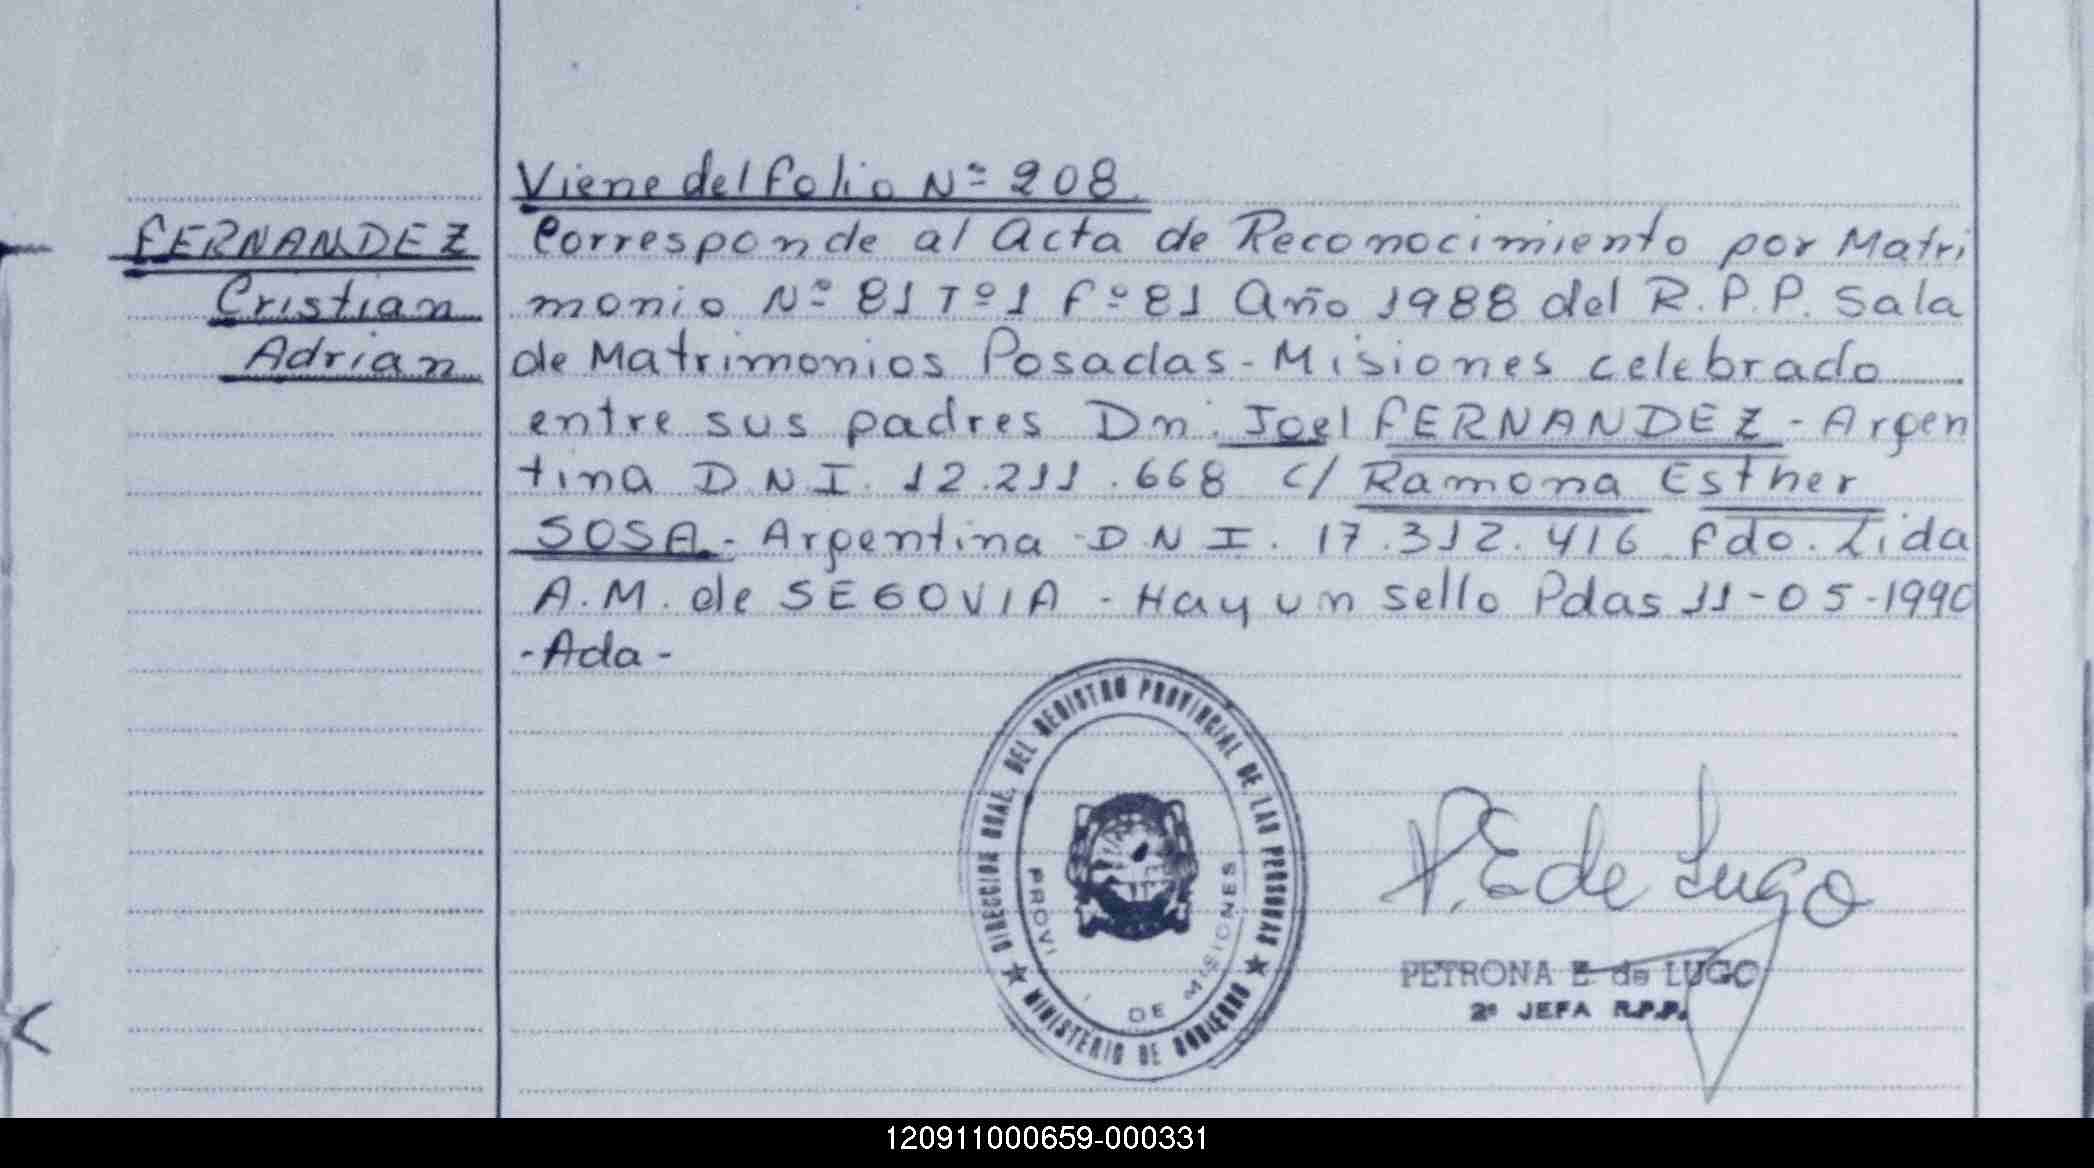 Viene del folio Nº 208.
FERNANDEZ
Cristian
Adrian
Corresponde al Acta de Reconocimiento por Matri
monio Nº 81 Tº 1 Fº 81 Año 1988 del R.P.P. Sala
de Matrimonios Posadas - Misiones celebrado
entre sus padres Dn. Joel FERNANDEZ - Argen
tina D.N.I. 12.211.668 c/ Ramona Esther
SOSA - Argentina D.N.I. 17.312.416 Fdo. Lida
A.M. de SEGOVIA - Hay un sello Pdas 11-05-1990
- Ada -
DIRECCION GRAL. DEL REGISTRO PROVINCIAL DE LAS PERSONAS
MINISTERIO DE GOBIERNO
PROVI DE MISIONES
P. E de Lugo
PETRONA E de LUGO
2º JEFA R.P.P.
120911000659-000331